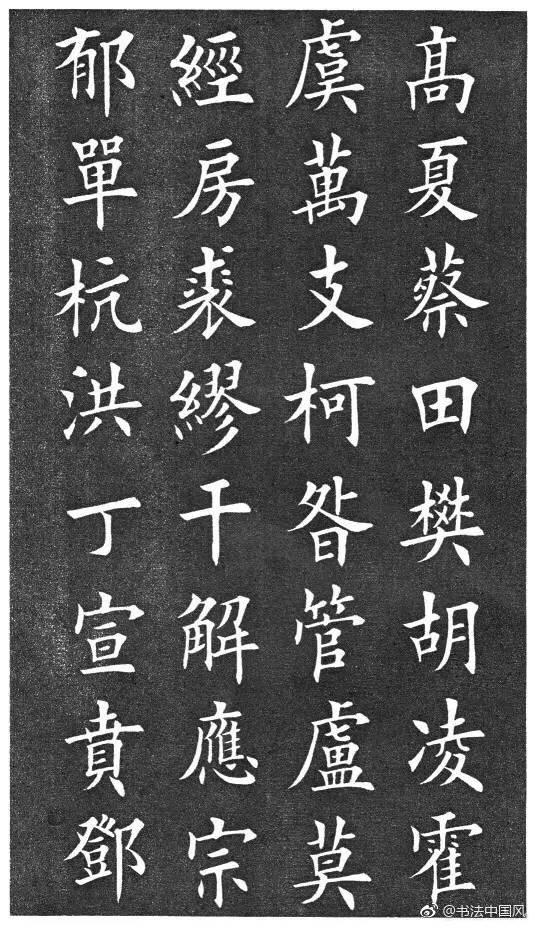 高夏蔡田樊胡凌霍
虞萬支柯昝管盧莫
經房裘繆干解應宗
郁單杭洪丁宣賁鄧
@书法中国风